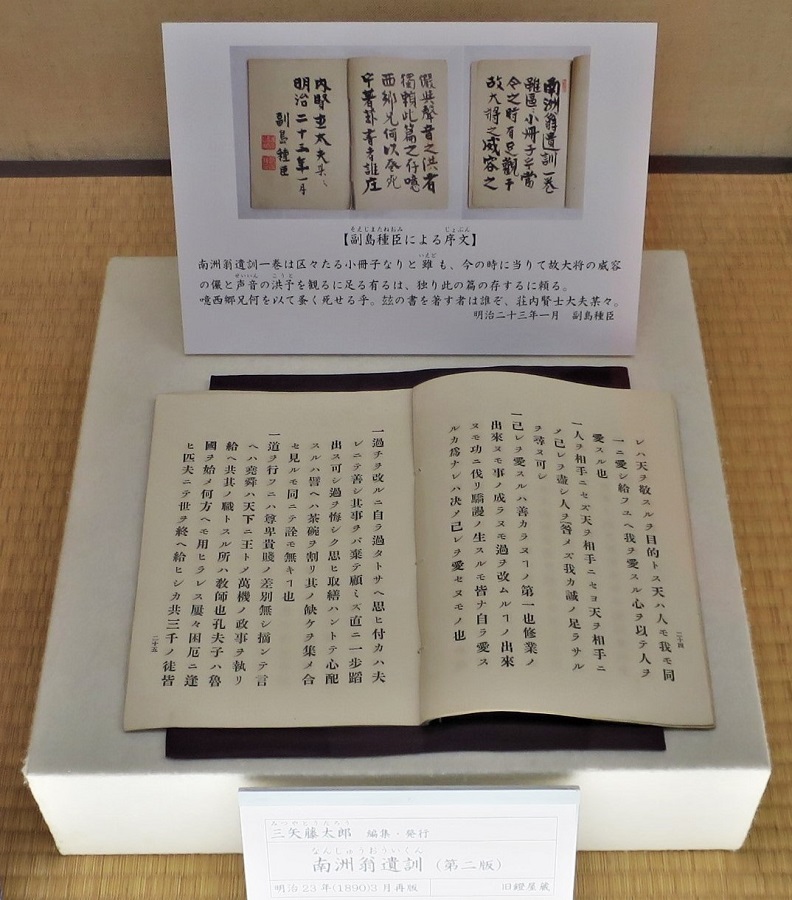 南洲翁遺訓一巻
雖區々小冊子乎當
今之時有足觀乎
故大将之威容之
儼與聲音之洪者
獨頼此篇之存噫
西郷兄何以蚤死
乎著茲書者誰庄
内賢士太夫某々
明治二十三年一月
副島種臣
そえじまたねおみ じょぶん
【副島種臣による序文】
いえど
南洲翁遺訓一巻は区々たる小冊子なりと雖も、今の時に当りて故大将の威容
せいいん こうと
の儼と声音の洪予を観るに足る有るは、独り此の篇の存するに頼る。
噫西郷兄何を以て蚤く死せる乎。玆の書を著す者は誰ぞ、荘内賢士大夫某々。
明治二十三年一月 副島種臣
レハ天ヲ敬スルヲ目的トス天ハ人モ我モ同
一ニ愛シ給フユヘ我ヲ愛スル心ヲ以テ人ヲ
愛スル也
一人ヲ相手ニセズ天ヲ相手ニセヨ天ヲ相手ニ
〆己レヲ盡シ人ヲ咎メズ我カ誠ノ足ラサル
ヲ尋ヌ可シ
一己レヲ愛スルハ善カラヌヿノ第一也修業ノ
出來ヌモ事ノ成ラヌモ過ヲ改ムルヿノ出來
ヌモ功ニ伐リ驕謾ノ生スルモ皆ナ自ラ愛ス
ルカ爲ナレハ决〆己レヲ愛セヌモノ也
二十四
一過チヲ改ルニ自ラ過タトサヘ思ヒ付カハ夫
レニテ善シ其事ヲバ棄テ顧ミズ直ニ一歩蹈
出ス可シ過ヲ悔シク思ヒ取繕ハントテ心配
スルハ譬ヘハ茶碗ヲ割リ其ノ缺ケヲ集メ合
セ見ルモ同ニテ詮モ無キヿ也
一道ヲ行フニハ尊卑貴賤ノ差別無シ摘ンテ言
ヘハ堯舜ハ天下ニ王ト〆萬機ノ政事ヲ執リ
給ヘ共其ノ職トスル所ハ敎師也孔夫子ハ魯
國ヲ始メ何方ヘモ用ヒラレス屢々困厄ニ逢
ヒ匹夫ニテ世ヲ終ヘ給ヒシカ共三千ノ徒皆
二十五
みつやとうたろう
三矢藤太郎 編集・発行
なんしゅうおういくん
南洲翁遺訓（第二版）
明治23年(1890)3月再版
旧鐙屋蔵